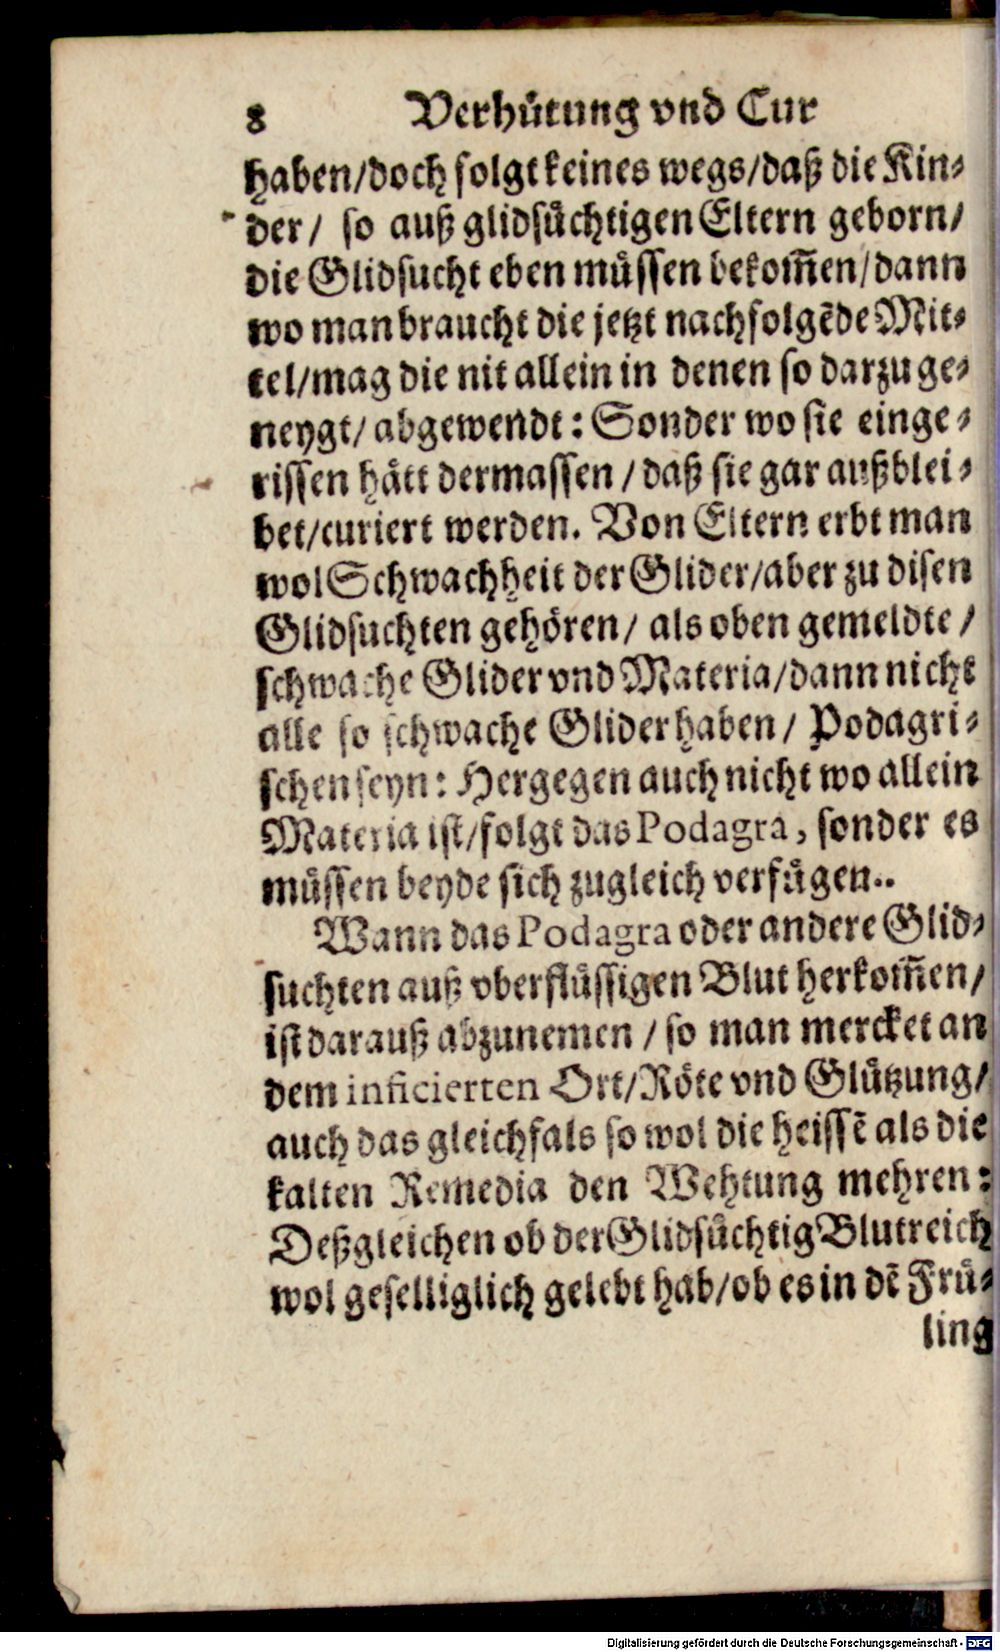 8 Verhuͤtung vnd Cur
haben/doch folgt keines wegs/daß die Kin-
der/ so auß glidsuͤchtigen Eltern geborn/
die Glidsucht eben muͤssen bekom̃en/dann
wo man braucht die jetzt nachfolgẽde Mit-
tel/mag die nit allein in denen so darzu ge-
neygt/ abgewendt: Sonder wo sie einge-
rissen haͤtt dermassen/ daß sie gar außblei-
bet/curiert werden. Von Eltern erbt man
wol Schwachheit der Glider/aber zu disen
Glidsuchten gehoͤren/ als oben gemeldte/
schwache Glider vnd Materia/dann nicht
alle so schwache Glider haben/ Podagri-
schen seyn: Hergegen auch nicht wo allein
Materia ist/folgt das Podagra, sonder es
muͤssen beyde sich zugleich verfuͤgen..
Wann das Podagra oder andere Glid-
suchten auß vberfluͤssigen Blut herkom̃en/
ist darauß abzunemen/ so man mercket an
dem inficierten Ort/Roͤte vnd Gluͤtzung/
auch das gleichfals so wol die heissẽ als die
kalten Remedia den Wehtung mehren:
Deßgleichen ob der Glidsuͤchtig Blutreich
wol geselliglich gelebt hab/ob es in dẽ Fruͤ-
ling
Digitalisierung gefördert durch die Deutsche Forschungsgemeinschaft - DFG